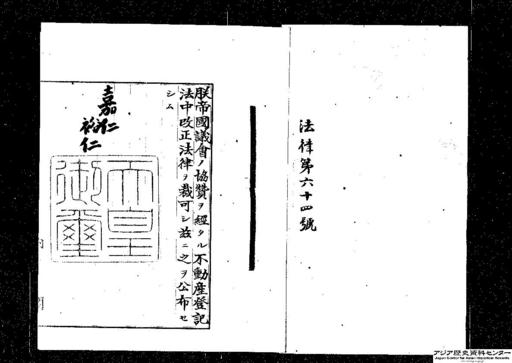 法律第六十四號
朕帝國議會ノ協贊ヲ經タル不動産登記
法中改正法律ヲ裁可シ茲ニ之ヲ公布セ
シム
嘉仁
裕仁
天皇
御璽
アジア歴史資料センター
Japan Center for Asian Historical Records